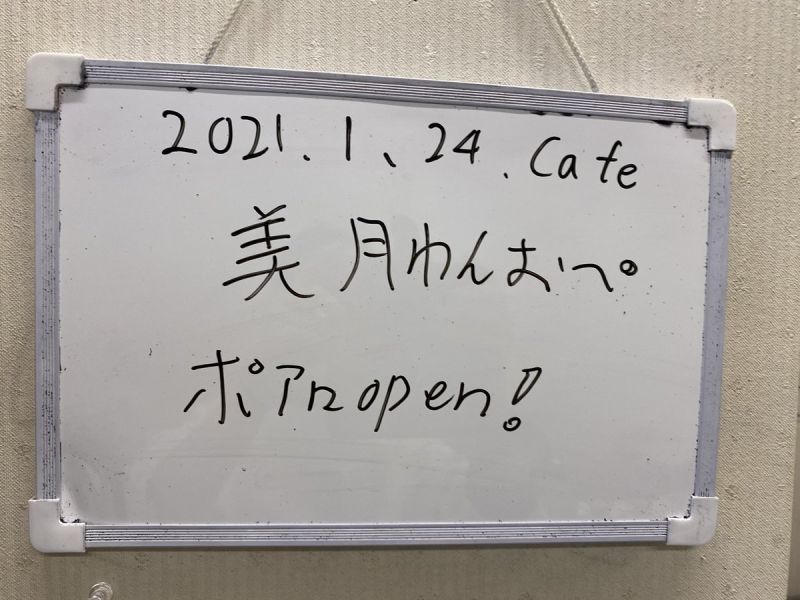 2021.1、24.Cafe
美月わんおぺ
ポアロopen!